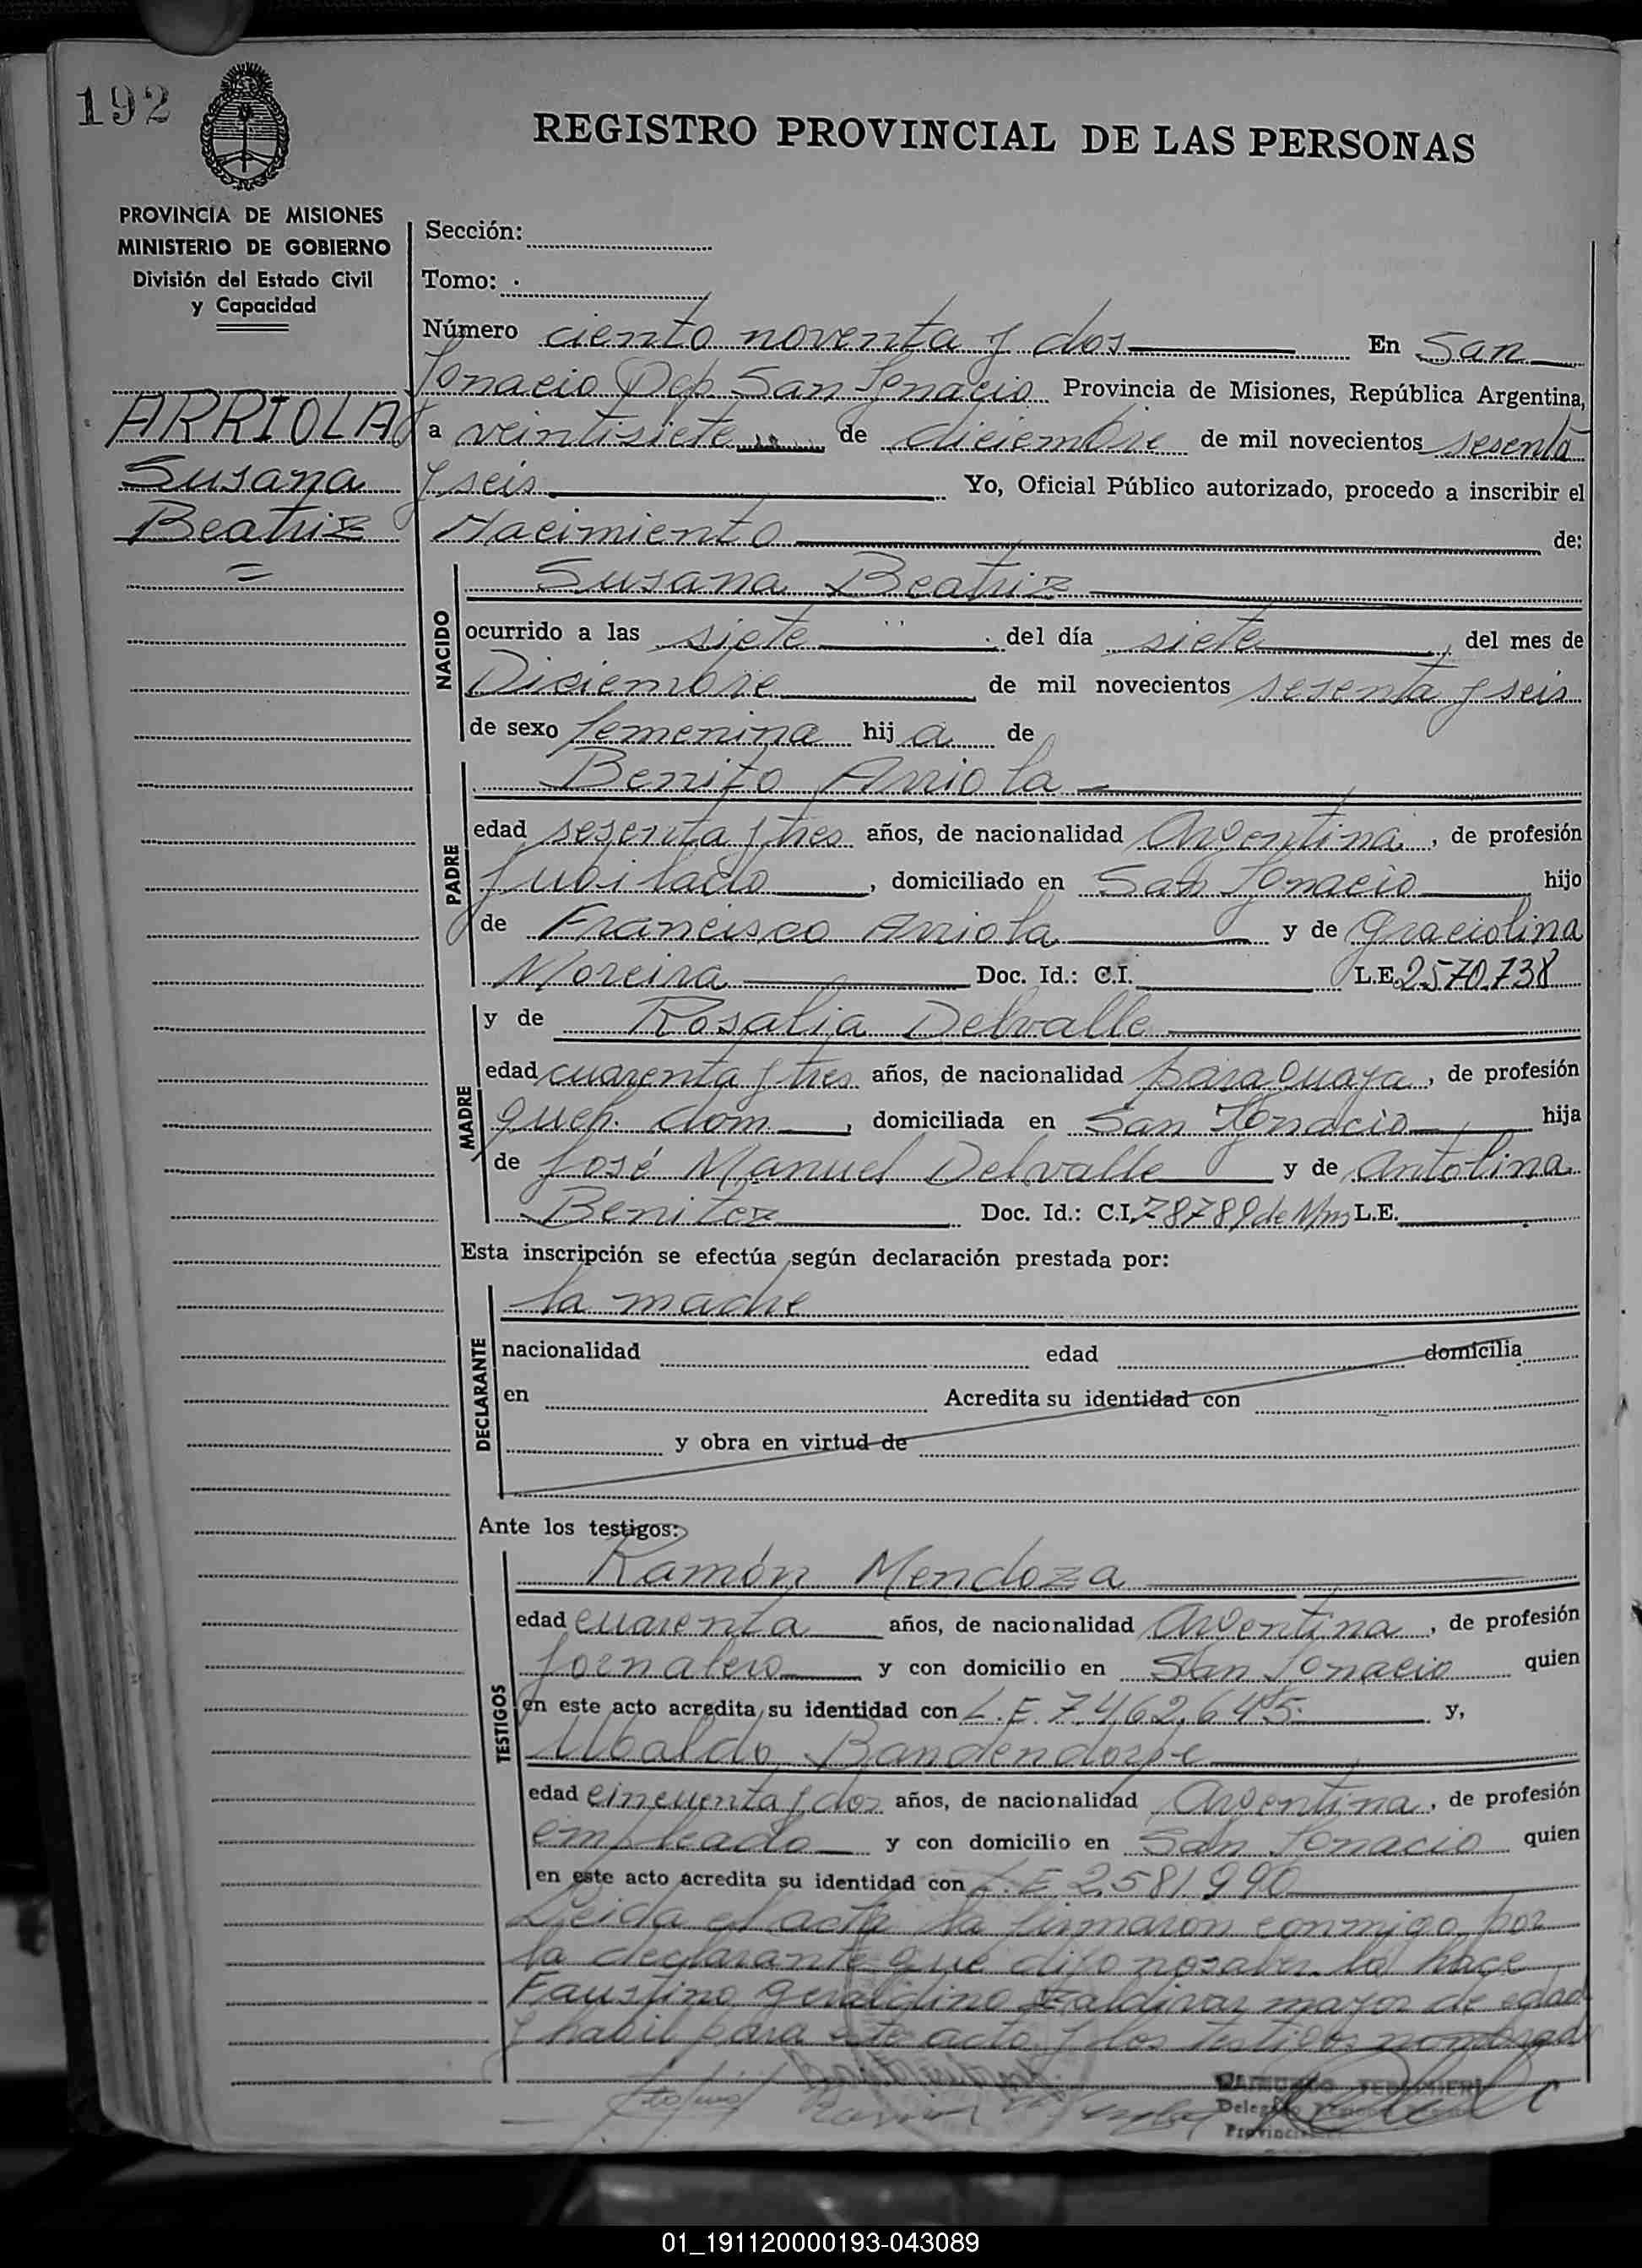 192
REGISTRO PROVINCIAL DE LAS PERSONAS
PROVINCIA DE MISIONES
MINISTERIO DE GOBIERNO
División del Estado Civil
y Capacidad
ARRIOLA
Susana
Beatriz
Sección:
Tomo:
Número ciento noventa y dos En San
Ignacio Dep. San Ignacio Provincia de Misiones, República Argentina,
a veintisiete de diciembre de mil novecientos sesenta
y seis Yo, Oficial Público autorizado, procedo a inscribir el
Nacimiento de:
NACIDO
Susana Beatriz
ocurrido a las siete del día siete, del mes de
Diciembre de mil novecientos sesenta y seis
de sexo femenina hija de
PADRE
Benito Arriola
edad sesenta y tres años, de nacionalidad Argentina, de profesión
Jubilado, domiciliado en San Ignacio hijo
de Francisco Arriola y de Graciolina
Moreira Doc. Id.: C.I. L.E. 2.570.738
MADRE
y de Rosalia Delvalle
edad cuarenta y tres años, de nacionalidad paraguaya, de profesión
queh. dom, domiciliada en San Ignacio hija
de José Manuel Delvalle y de Antolina
Benitez Doc. Id.: C.I. 78789 de Mnes L.E.
Esta inscripción se efectúa según declaración prestada por:
DECLARANTE
la madre
nacionalidad edad domicilia
en Acredita su identidad con
y obra en virtud de
Ante los testigos:
TESTIGOS
Ramón Mendoza
edad cuarenta años, de nacionalidad Argentina, de profesión
Jornalero y con domicilio en San Ignacio quien
en este acto acredita su identidad con L.E. 7.462.645 y,
Ubaldo Bandendorpe
edad cincuenta y dos años, de nacionalidad Argentina, de profesión
empleado y con domicilio en San Ignacio quien
en este acto acredita su identidad con L.E 2.581.990
Leida el acta la firmaron conmigo por
la declarante que dijo no saber lo hace
Faustino Geraldino Zaldivar mayor de edad
y habil para este acto y los testigos nombrad
Ramon
Provincia
01_191120000193-043089